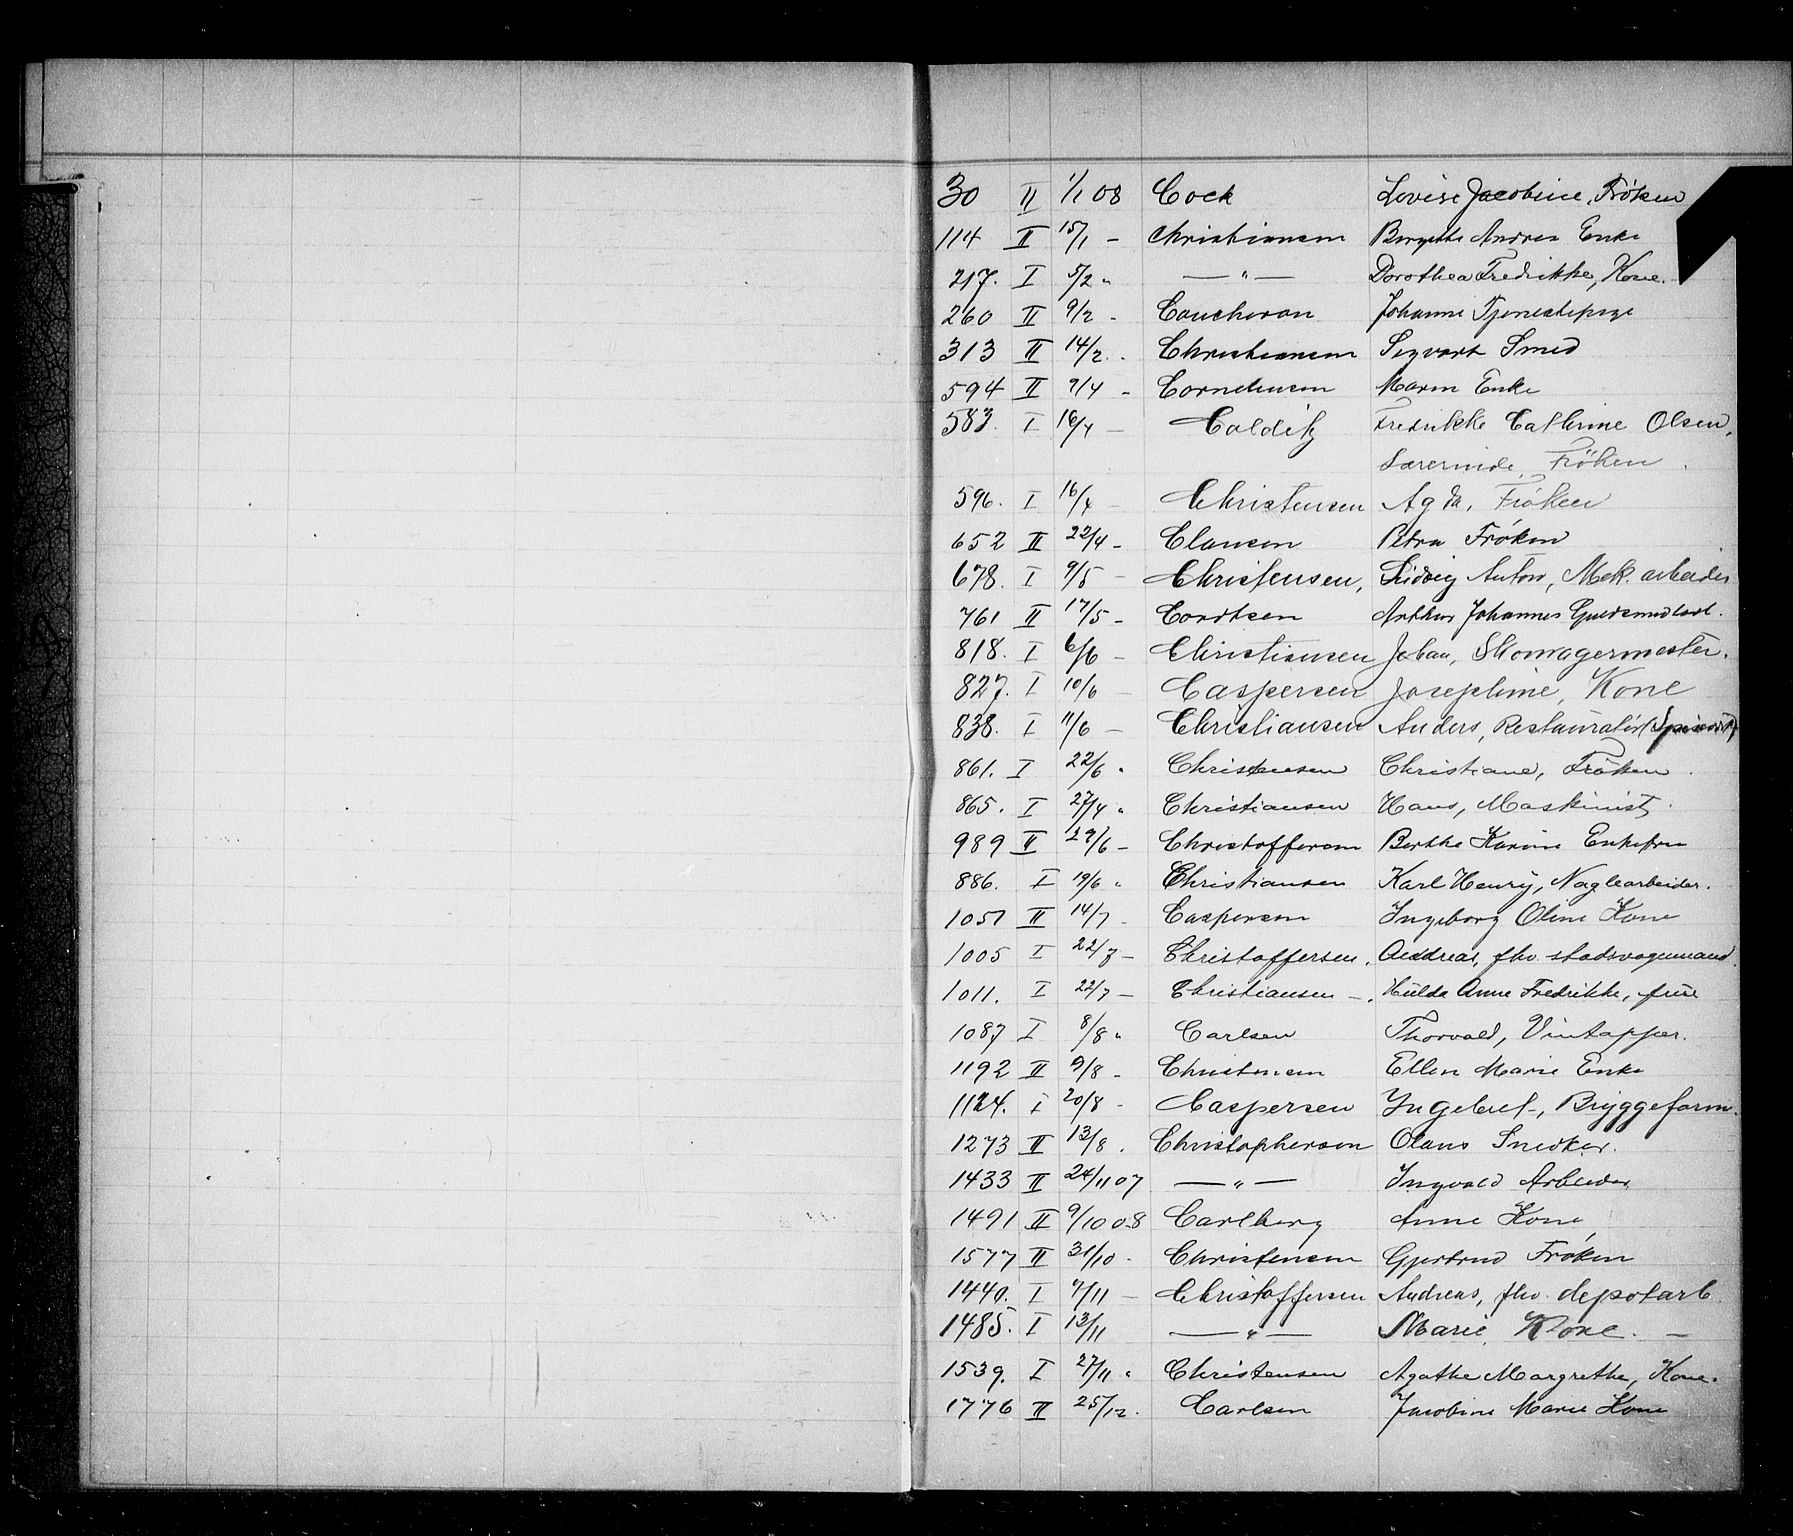 30 II 1/1 08 Cock Lovise Jacobine, Frøken
114 II 15/1 - Christiansen Bergithe Andrea Enke
217. I 5/2 " — " — Dorothea Fredrikke, Kone.
260 II 9/2 - Coucheron Johanne Tjenestepige
313 II 14/2 - Christiansen Sigvart Smed
594 II 9/4 - Corneliussen Maren Enke
583. I 16/4 — Colditz Fredrikke Cathrine Olsen,
Lærerinde, Frøken.
596. I 16/4 - Christensen Agda, Frøken
652 II 22/4 - Clausen Petra Frøken
678. I 9/5 - Christensen, Ludvig Anton, Mek. arbeider
761 II 17/5 - Cordtsen Arthur Johannes Guldsmed
818. I 6/6 - Christiansen Johan, Skomagermester.
827. I 10/6 - Caspersen Josephine, Kone
838. I 11/6 - Christiansen Anders, Restauratør
861. I 22/6 " Christensen Christiane, Frøken.
865. I 27/4 " Christiansen Hans, Maskinist.
989 II 29/6 - Christoffersen Berthe Karine Enkefru
886. I 19/6 " Christiansen Karl Henry, Naglearbeider.
1051 II 14/7 - Caspersen Ingeborg Oline Kone
1005 I 22/7 - Christoffersen, Andreas, fhv. stadsvognmand.
1011. I 22/7 - Christiansen -, Hulda Anne Fredrikke, frue
1087 I 8/8 " Carlsen Thorvald, Vintapper.
1192 II 9/8 - Christensen Ellen Marie Enke
1124. I 20/8 - Caspersen Ingebret -, Bryggeform.
1273 II 13/8 . Christophersen Olaus Snedker.
1433 II 24/11 07 — " — Ingvald Arbeider
1491 II 9/10 08 Carlberg Anne Kone
1577 II 31/10 - Christensen Gjertrud Frøken
1440. I 7/11 - Christoffersen Andreas, fhv. depotarb.
1485. I 13/11 — " — Marie, Kone. —
1539. I 27/11 " Christensen Agathe Margrethe, Kone.
1776 II 25/12. Carlsen Jacobine Marie Kone